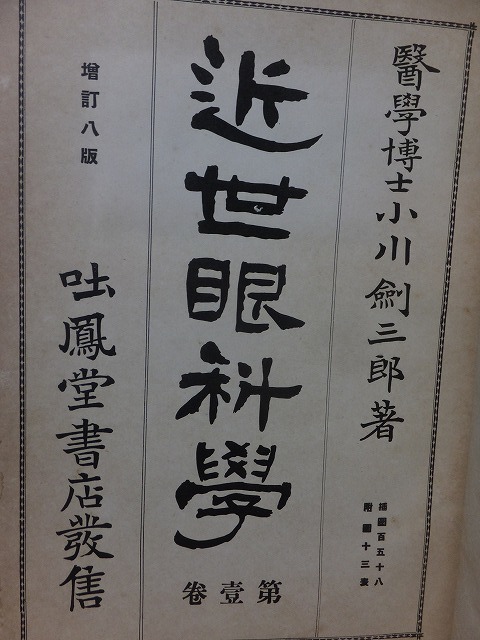 醫學博士小川劍三郎著
插圖百五十八
附圖十三表
近世眼科學
第壹卷
增訂八版
吐鳳堂書店發售